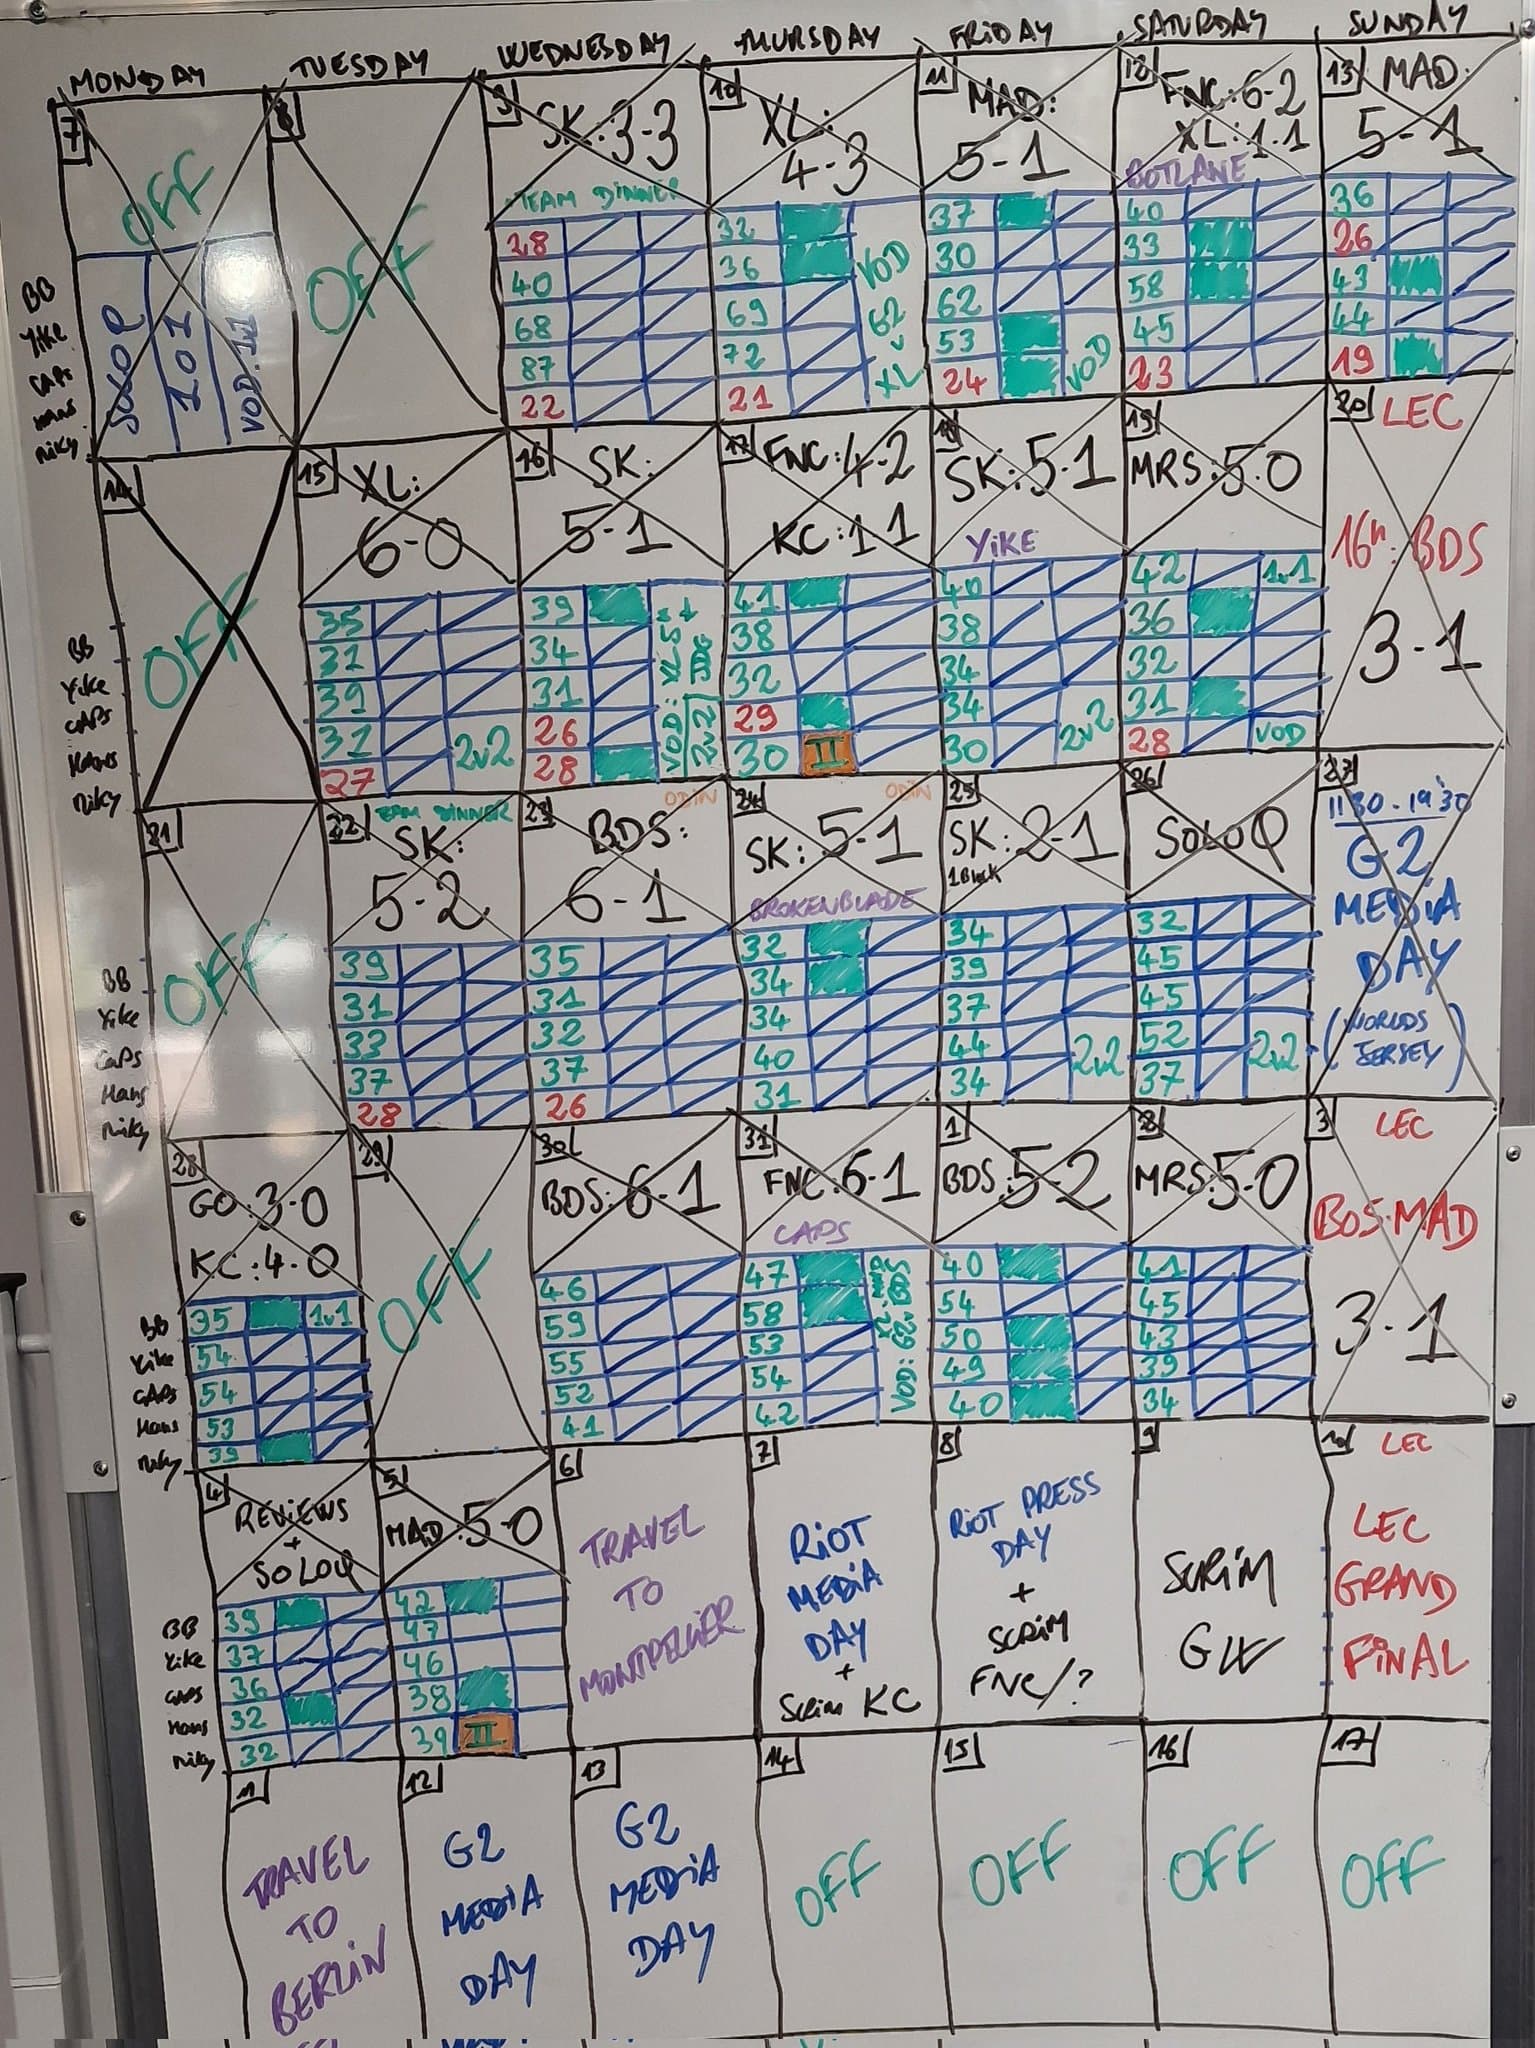 MONDAY TUESDAY WEDNESDAY THURSDAY FRIDAY SATURDAY SUNDAY
7
OFF
SOLOQ
101
BB
Yike
CAPS
HANS
Miky
8
OFF
9
SK: 3-3
TEAM DINNER
28
40
68
87
22
10
XL:
4-3
32
36
69
72
21
VOD
G2
v
XL
11
MAD:
5-1
37
30
62
53
24
VOD
12
FNC: 6-2
XL: 1-1
BOTLANE
40
33
58
45
23
13
MAD:
5-1
36
26
43
44
19
14
OFF
BB
Yike
CAPS
Hans
Miky
15
XL:
6-0
35
31
39
31
27
2v2
16
SK:
5-1
39
34
31
26
28
2v2
17
FNC: 4-2
KC: 1-1
41
38
32
29
30
II
18
SK: 5-1
YIKE
40
38
34
34
30
2v2
19
MRS: 5-0
42
36
32
31
28
1v1
VOD
20
LEC
16h: BDS
3-1
21
OFF
BB
Yike
CAPS
Hans
Miky
22
TEAM DINNER
SK:
5-2
39
31
33
37
28
23
BDS:
6-1
35
31
32
37
26
24
SK: 5-1
BROKENBLADE
32
34
34
40
31
25
SK: 2-1
1 Block
34
39
37
44
34
2v2
26
SOLOQ
32
45
45
52
37
2v2
27
11'30-19'30
G2
MEDIA
DAY
(WORLDS
JERSEY)
28
GO: 3-0
KC: 4-0
BB
Yike
CAPS
Hans
Miky
35
54
54
53
39
1v1
29
OFF
30
BDS: 6-1
46
59
55
52
41
31
FNC: 6-1
CAPS
47
58
53
54
42
1
BDS: 5-2
40
54
50
49
40
2
MRS: 5-0
41
45
43
39
34
3
LEC
BO5: MAD
3-1
4
REVIEWS
+
SOLOQ
BB
Yike
CAPS
Hans
Miky
39
37
36
32
32
5
MAD: 5-0
42
47
46
38
39
II
6
TRAVEL
TO
MONTPELLIER
7
RIOT
MEDIA
DAY
+
SCRIM KC
8
RIOT PRESS
DAY
+
SCRIM
FNC/?
9
SCRIM
GW
10
LEC
LEC
GRAND
FINAL
11
TRAVEL
TO
BERLIN
12
G2
MEDIA
DAY
13
G2
MEDIA
DAY
14
OFF
15
OFF
16
OFF
17
OFF